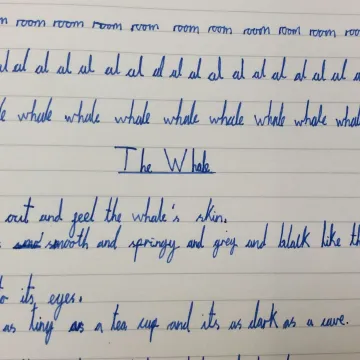 room room room room room room room room room room room
al al al al al al al al al al al al al al
whale whale whale whale whale whale whale
The Whale
out and feel the whale's skin.
smooth and springy and grey and black like
its eyes.
as tiny as a tea cup and its as dark as a cave.